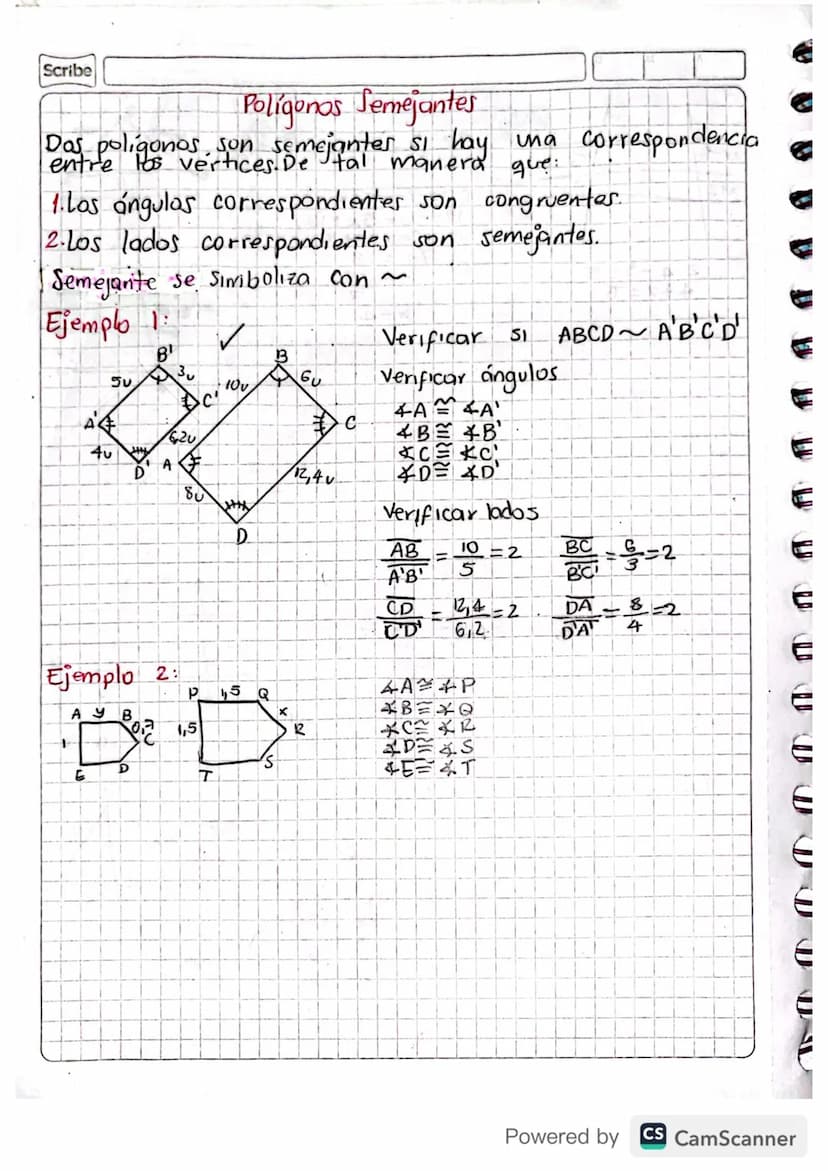 Scribe
Polígonos Semejantes
Dos polígonos son semejantes si hay una correspondencia
entre los vértices. De tal manera que:
1. Los ángulos correspondientes son congruentes.
2. Los lados correspondientes son semejantes.
Semejante se simboliza con ~
Ejemplo 1: ✓
Verificar si ABCD ~ A'B'C'D'
B' B
5u 3u 10u 6u
A' C' C
4u 6,2u A 12,4u
D' 8u
D
Verificar ángulos
∡A ≅ ∡A'
∡B ≅ ∡B'
∡C ≅ ∡C'
∡D ≅ ∡D'
Verificar lados
AB/A'B' = 10/5 = 2 BC/B'C' = 6/3 = 2
CD/C'D' = 12,4/6,2 = 2 . DA/D'A' = 8/4 = 2
Ejemplo 2:
P 1,5 Q
A y B x
0,7 1,5 R
1 C
E D T S
∡A ≅ ∡P
∡B ≅ ∡Q
∡C ≅ ∡R
∡D ≅ ∡S
∡E ≅ ∡T
Powered by CS CamScanner